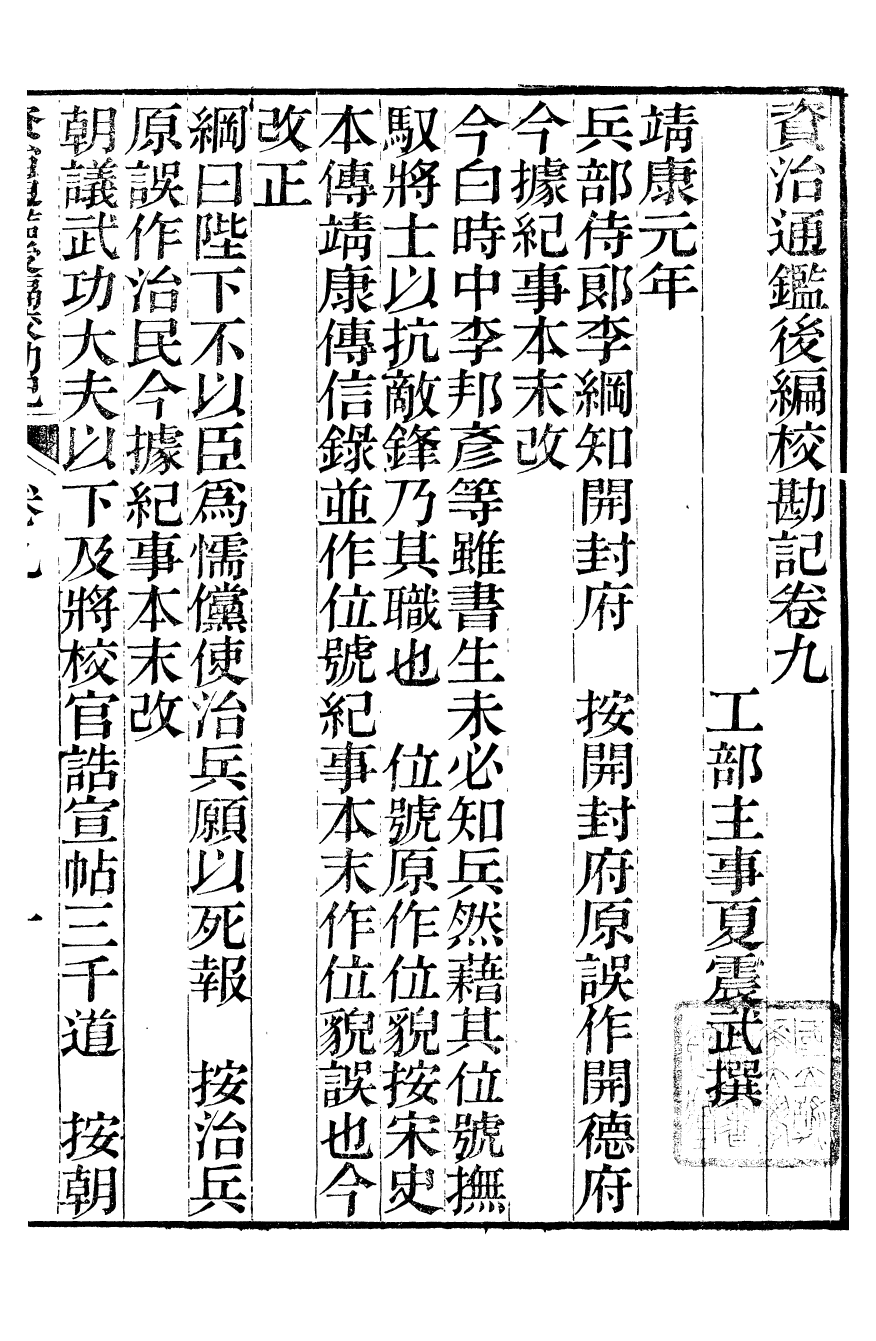 資治通鑑後編校勘記卷九
工部主事夏震武撰
靖康元年
兵部侍郎李綱知開封府　按開封府原誤作開德府
今據紀事本末改
今白時中李邦彥等雖書生未必知兵然藉其位號撫
馭將士以抗敵鋒乃其職也　位號原作位貌按宋史
本傳靖康傳信錄並作位號紀事本末作位貌誤也今
改正
綱曰陛下不以臣爲懦儻使治兵願以死報　按治兵
原誤作治民今據紀事本末改
朝議武功大夫以下及將校官誥宣帖三千道　按朝